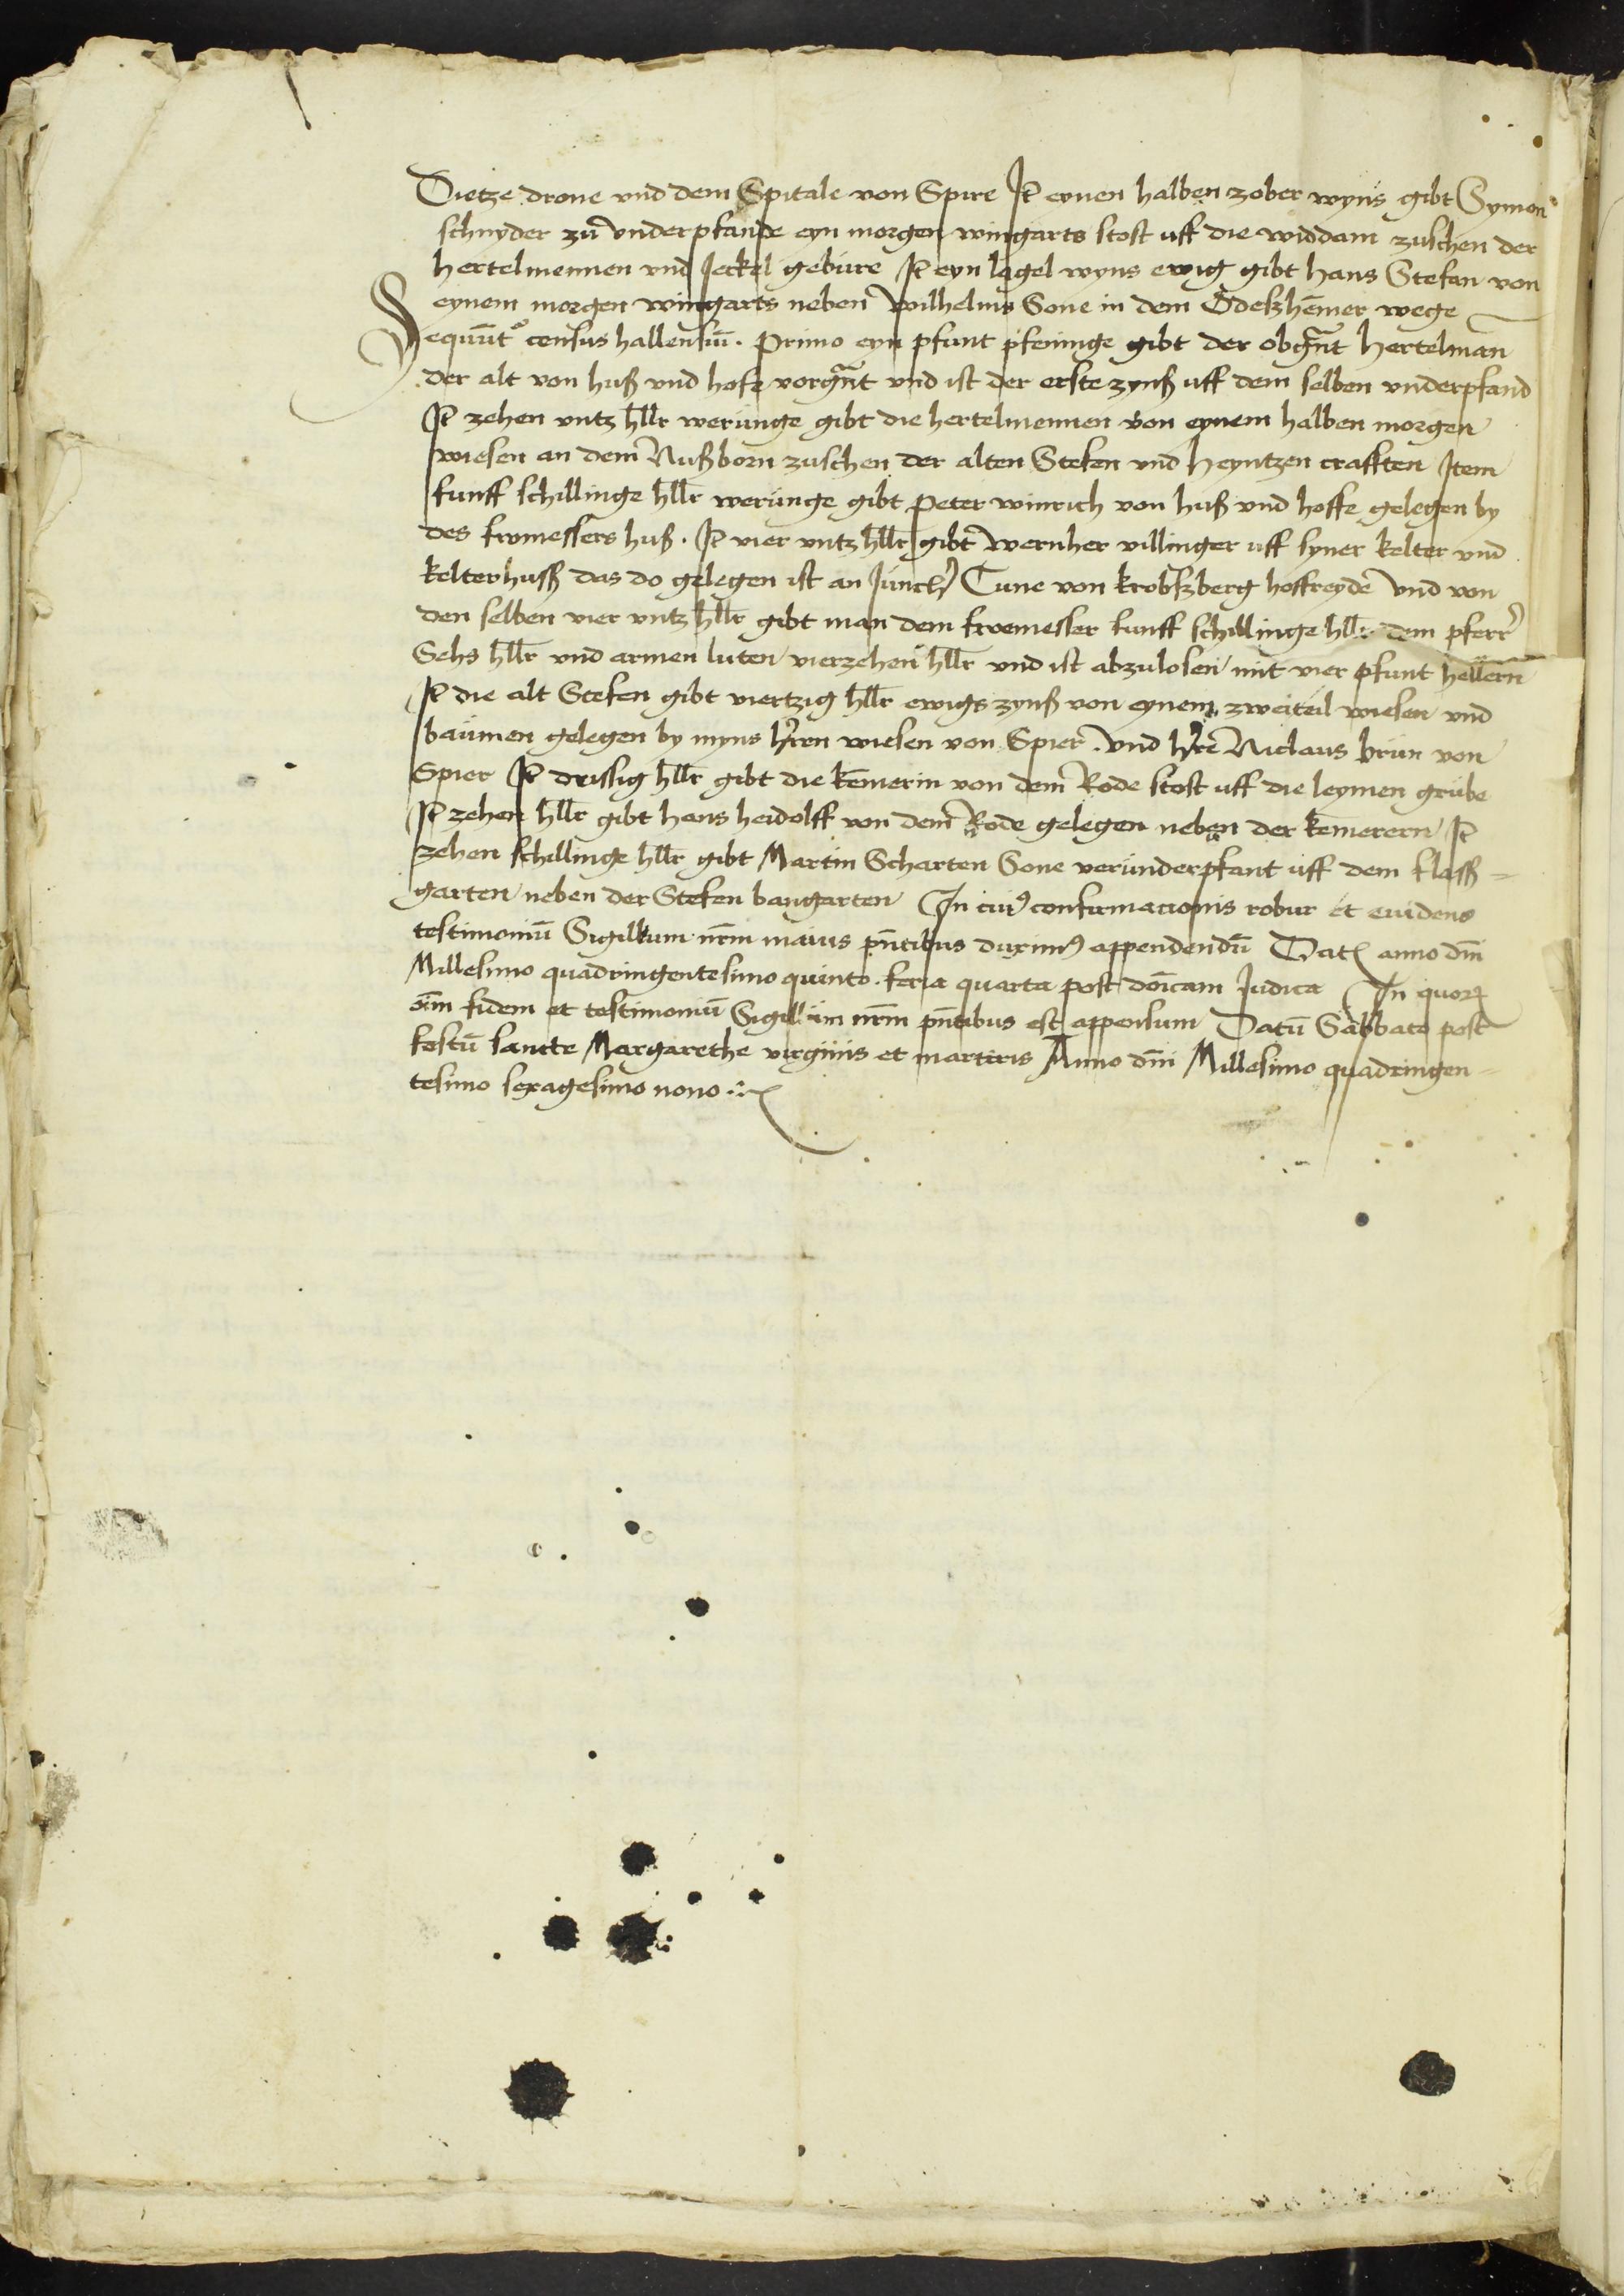 Dietze drone vnd dem Spitale von Spire It̄ eynen halben zober wyns gibt Symon
schnyder zu vnderpfande eyn morgen wingarts stost uff die widdam zuschen der
hertelmennen vnd Jeckel gebure It̄ eyn lagel wyns ewig gibt hans Stefan von
eynem morgen wingarts neben wilhelms Sone in dem Odeßhēmer wege
Sequūt᷑ census hallensiū. Primo eyn pfunt pfeninge gibt der obgnāt hertelman
der alt von huß vnd hofe vorgnāt vnd ist der erste zynß uff dem selben vnderpfand
It̄ zehen vntz hllr̄ werunge gibt die hertelmennen von eynem halben morgen
wiesen an dem Nußborn zuschen der alten Stefen vnd heyntzen crafften Item
funff schillinge hllr̄ werunge gibt Peter winrich von huß vnd hoffe gelegen by
des frumessers huß. It̄ vier vntz hllr̄ gibt wernher villinger uff syner kelter vnd
kelterhuss das do gelegen ist an Junch̓ Cune von krobßberg hoffreyde vnd von
den selben vier vntz hllr̄ gibt man dem fruemesser funff schillinge hllr̄ dem pferr̓
Sehs hllr̄ vnd armen luten vierzehen hllr̄ vnd ist abzulosen mit vier pfunt hellern
It̄ die alt Stefen gibt viertzig hllr̄ ewigs zynß von eynem zweiteil wiesen vnd
baumen gelegen by myns h̓ren wiesen von Spier. vnd h̓re Niclaus brun von
Spier It̄ drissig hllr̄ gibt die kemerin von dem Rode stost uff die leymen grube
It̄ zehen hllr̄ gibt hans heidolff von dem Rode gelegen neben der kemerern It̄
zehen schillinge hllr̄ gibt Martin Scharten Sone verunderpfant uff dem flass=
garten neben der Stefen bangarten In cui᷒ confirmacionis robur et euidens
testimoniū Sigillum nr̄m maius pn̄tibus duxim᷒ appendendū Dat anno dn̄i
Millesimo quadringentesimo quinto. feria quarta post dōicam Judica In quorꝝ
oīm fidem et testimoniū Sigillum nr̄m pn̄tibus est appensum Datū Sabbato post
festū sancte Margarethe virginis et martiris Anno dn̄i Millesimo quadringen=
tesimo sexagesimo nono